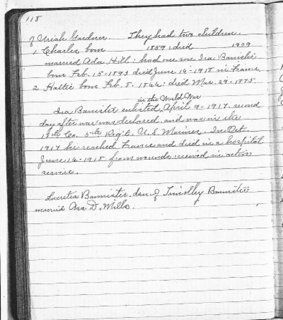 118
of Uriah Gardner. They had two children.
1. Charles born 1859 died 1909
married Ada Hill: had one son Ira Banister
born Feb. 15-1893 died June 14-1918 in France
2. Hattie born Feb. 8. 1862: died Mar. 29-1875.
in the World War
Ira Banister enlisted April 9-1917, second
day after war was declared, and was in the
Co. 5th Reg't. U.S. Marines. In Oct.
1917 he reached France and died in a hospital
June 14-1918 from wounds received in active
service.
Lucretia Bannister, dau. of Timothy Bannister
married Asa D. Mills.